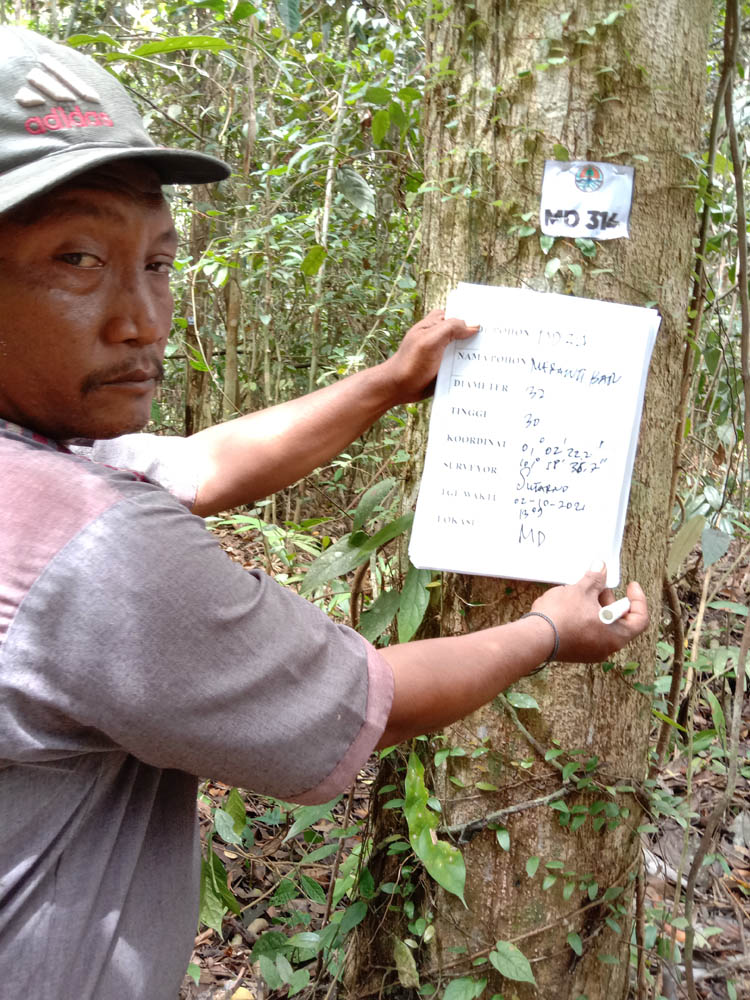 adidas
MD 316
POHON
NAMA POHON MERANTI BATU
DIAMETER 32
TINGGI 30
KOORDINAT 01° 02' 22.2"
SURVEYOR SUTARNO
TGL WAKTU 02-10-2021
LOKASI MD